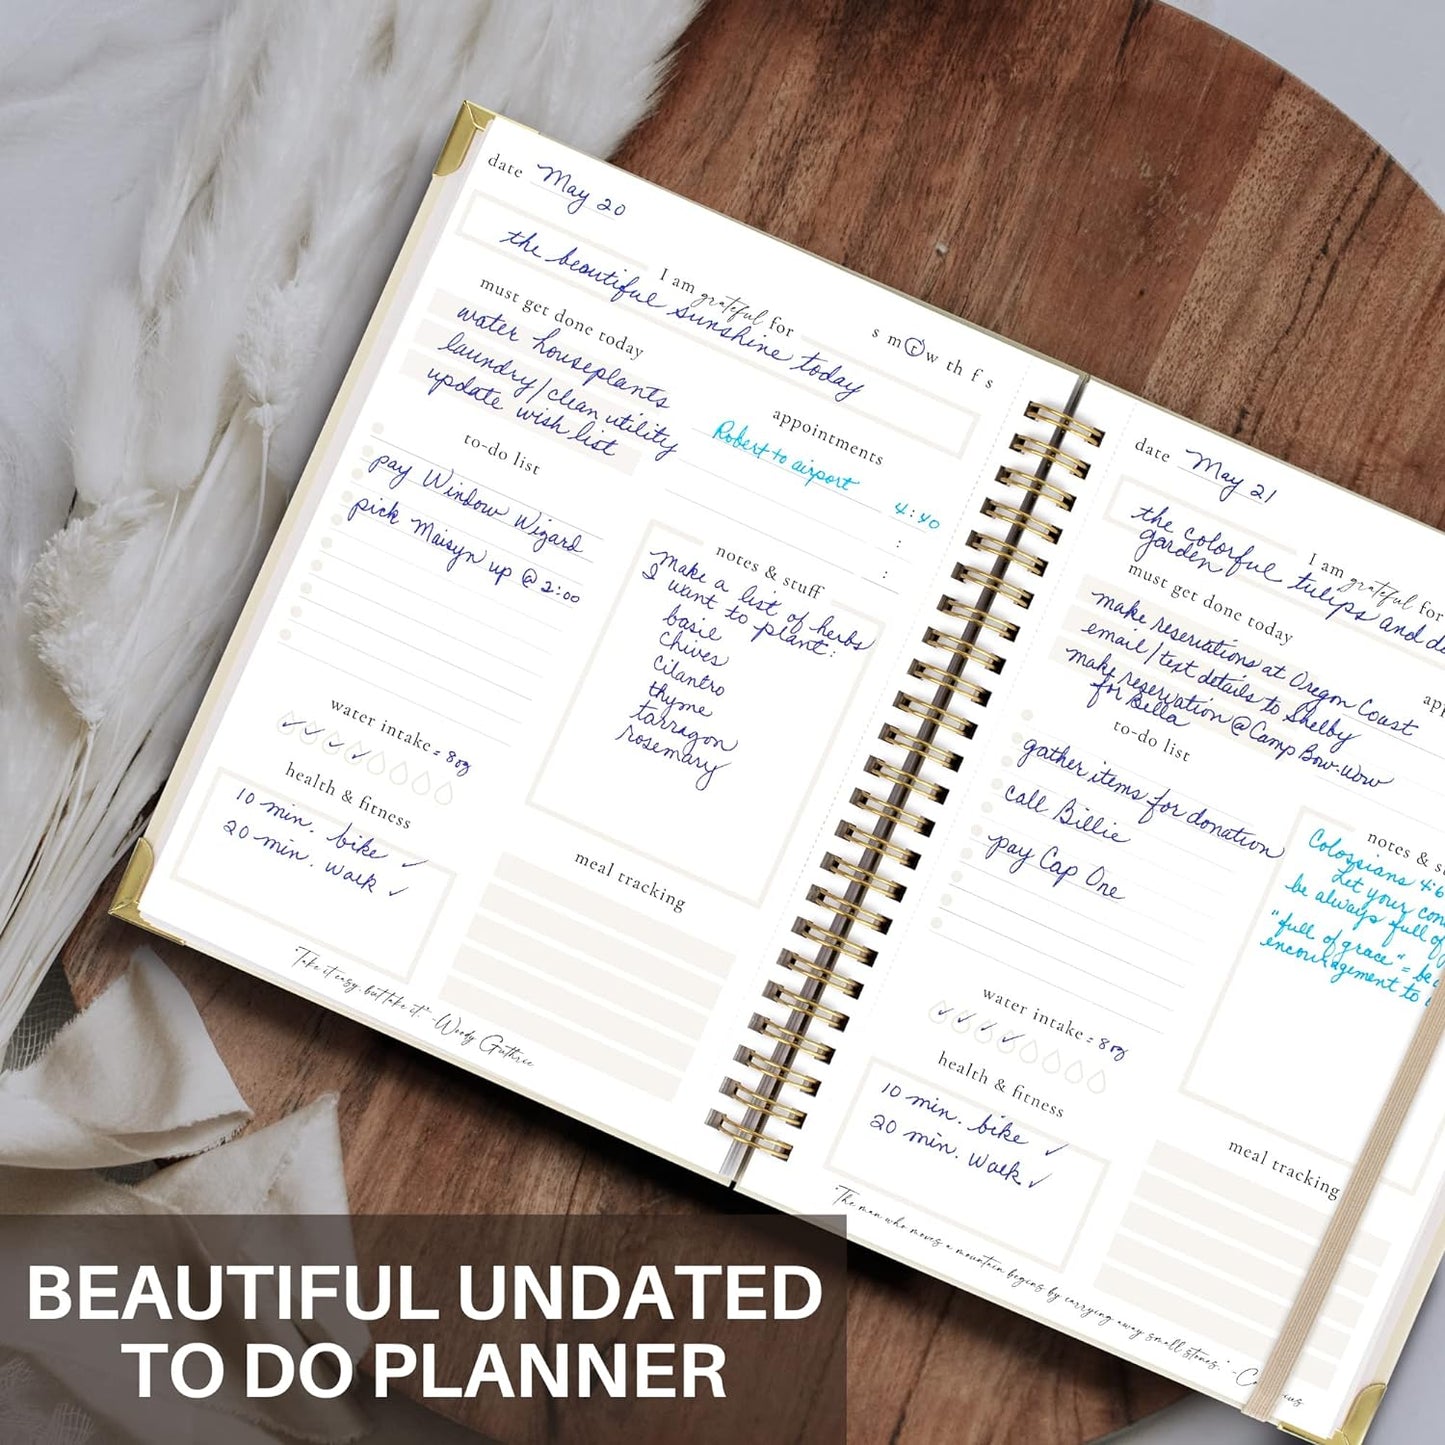 date May 20
I am grateful for
the beautiful sunshine today
s m t w th f s
must get done today
water houseplants
laundry/clean utility
update wish list
appointments
Robert to airport 4:40
:
:
to-do list
pay Window Wizard
pick Maisyn up @ 2:00
notes & stuff
make a list of herbs
I want to plant:
basil
chives
cilantro
thyme
tarragon
rosemary
water intake = 8oz
health & fitness
10 min. bike ✓
20 min. walk ✓
meal tracking
"Take it easy, but take it." -Woody Guthrie
date May 21
I am grateful for
the colorful tulips and
garden
must get done today
make reservations at Oregon Coast
email/text details to Shelby
make reservation @ Camp Bow-wow
for Bella
to-do list
gather items for donation
call Billie
pay Cap One
notes &
Colossians 4:6
Let your
be always full of
"full of grace" = be
encouragement to
water intake = 8oz
health & fitness
10 min. bike ✓
20 min. walk ✓
meal tracking
"The man who moves a mountain begins by carrying away small stones." -
BEAUTIFUL UNDATED
TO DO PLANNER